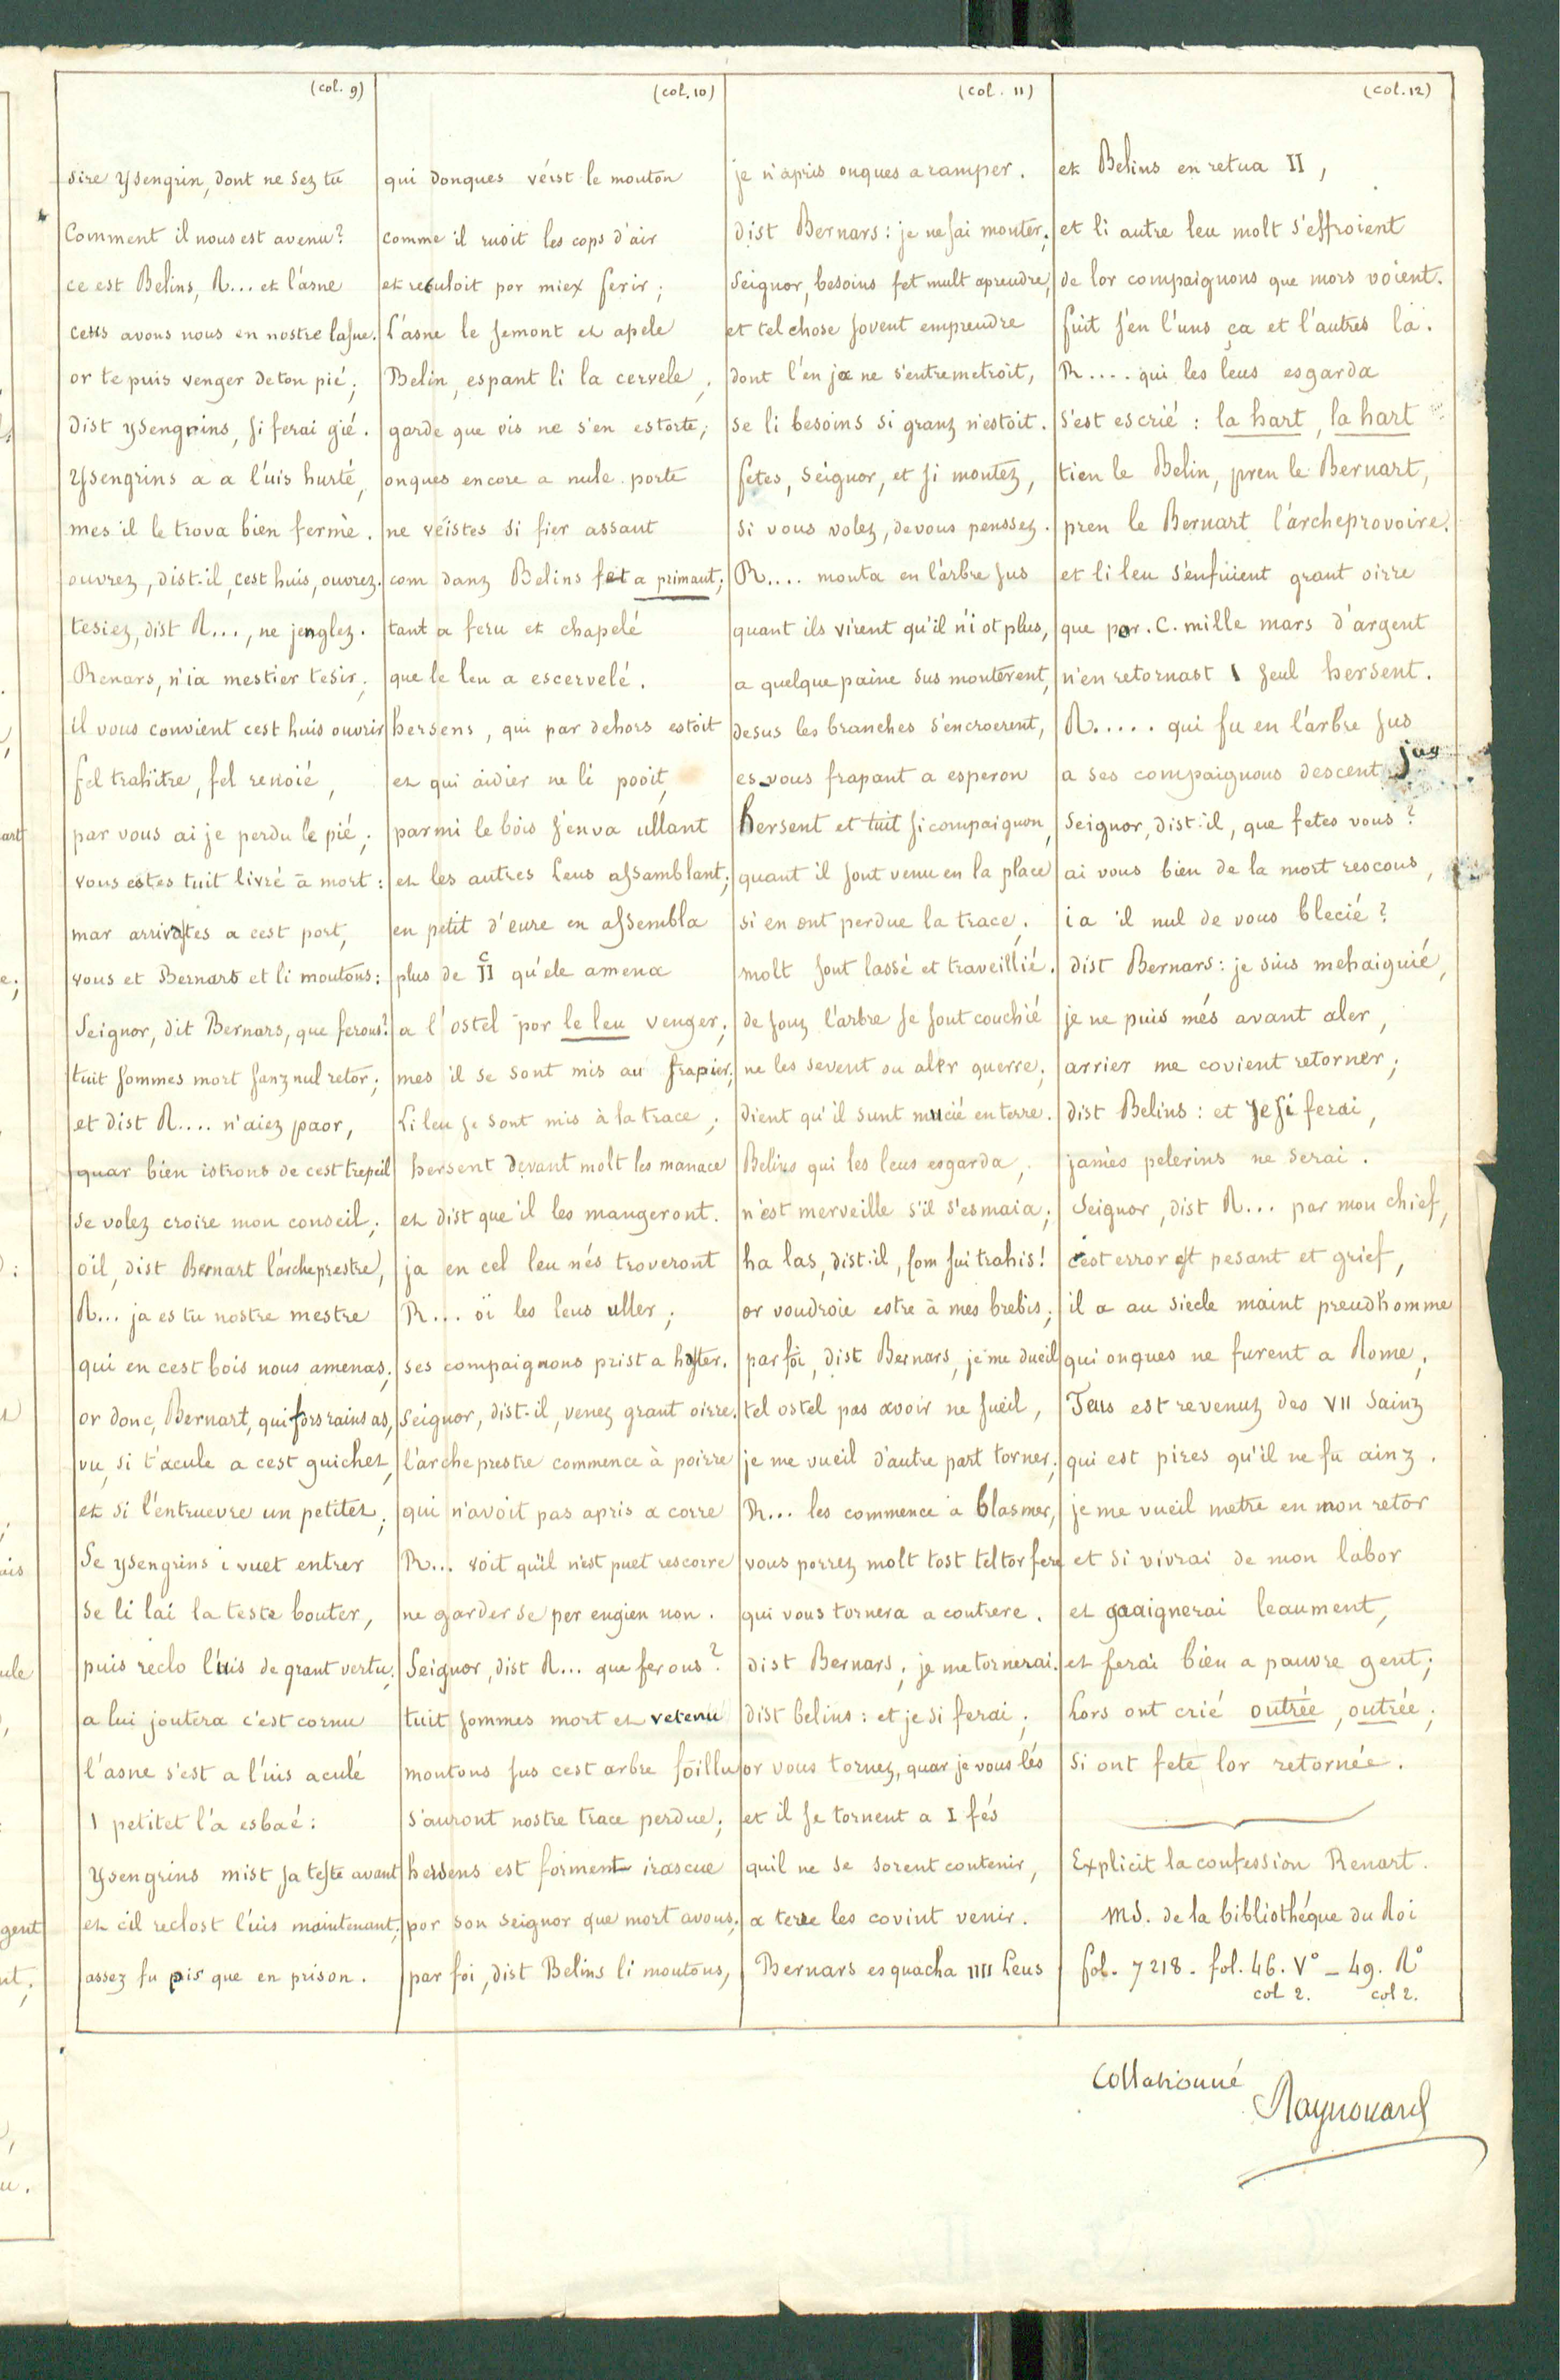 (col. 9)
sire ysengrin, dont ne sez tu
Comment il nous est avenu?
ce est Belins, R... et l'asne
ceus avons nous en nostre lasne.
or te puis venger de ton pié;
dist ysengrins, si ferai gié.
Ysengrins a a l'uis hurté,
mes il le trova bien fermé.
ouvrez, dist-il, cest huis, ouvrez.
tesiez, dist R..., ne jenglez.
Renars, n'ia mestier tesir,
il vous convient cest huis ouvrir
fel trahitre, fel renoié,
par vous ai je perdu le pié;
vous estes tuit livré à mort:
mar arrivastes a cest port,
vous et Bernars et li moutons:
Seignor, dit Bernars, que ferons?
tuit sommes mort sanz nul retor;
et dist R.... n'aiez paor,
quar bien istrons de cest trepeil
se volez croire mon conseil;
oïl, dist Bernart l'archeprestre,
R... ja es tu nostre mestre
qui en cest bois nous amenas;
or donc, Bernart, qui fors rains as,
vu, si t'acule a cest guichet,
et si l'entruevre un petitet;
Se ysengrins i vuet entrer
se li lai la teste bouter,
puis reclo l'uis de grant vertu;
a lui joutera c'est cornu
l'asne s'est a l'uis aculé
I petitet l'a esbaé:
Ysengrins mist sa teste avant
et cil reclost l'uis maintenant;
assez fu pis que en prison.
(col. 10)
qui donques véist le mouton
comme il rusoit les cops d'air
et reculoit por miex ferir;
l'asne le semont et apele
Belin, espant li la cervele,
garde que vis ne s'en estorte;
onques encore a nule porte
ne véistes si fier assaut
com danz Belins fet a primaut;
tant a feru et chapelé
que le leu a escervelé.
hersens, qui par dehors estoit
et qui aidier ne li pooit,
parmi le bois s'en va ullant
et les autres leus assamblant;
en petit d'eure en assembla
plus de IIc qu'ele amena
a l'ostel por le leu venger;
mes il se sont mis au frapier;
Li leu se sont mis à la trace;
hersent devant molt les manace
et dist que il les mangeront.
ja en cel leu nés troveront
R... oï les leus uller;
ses compaignons prist a haster.
Seignor, dist-il, venez grant oirre.
l'archeprestre commence à poirre
qui n'avoit pas apris a corre
R... voit qu'il n'est puet rescorre
ne garder se per engien non.
Seignor, dist R... que ferons?
tuit sommes mort et retenu
montons sus cest arbre foillu
s'auront nostre trace perdue;
hersens est forment irascue
por son seignor que mort avons;
par foi, dist Belins li moutons,
(col. 11)
je n'apris onques a ramper.
dist Bernars: je ne sai monter;
Seignor, besoins fet mult aprendre,
et tel chose sovent emprendre
dont l'en ja ne s'entremetroit,
se li besoins si granz n'estoit.
fetes, seignor, et si montez,
si vous volez, de vous penssez.
R.... monta en l'arbre sus
quant ils virent qu'il n'i ot plus,
a quelque paine sus monterent,
desus les branches s'encroerent,
es vous frapant a esperon
hersent et tuit si compaignon,
quant il sont venu en la place
si en ont perdue la trace.
molt sont lassé et traveillié.
de souz l'arbre se sont couchié
ne les sevent ou aler querre;
dient qu'il sunt mucié en terre.
Belins qui les leus esgarda,
n'est merveille s'il s'esmaia;
ha las, dist-il, com sui trahis!
or voudroie estre à mes brebis;
par foi, dist Bernars, je me dueil
tel ostel pas avoir ne sueil,
je me vueil d'autre part torner;
R... les commence a blasmer,
vous porrez molt tost tel tor fere
qui vous tornera a contrere.
dist Bernars; je me tornerai.
dist belins: et je si ferai;
or vous tornez, quar je vous lés
et il se tornent a I fés
quil ne se sorent contenir,
a terre les covint venir.
Bernars esquacha IIII leus
(col. 12)
et Belins en retua II,
et li autre leu molt s'effroient
de lor compaignons que mors voient.
fuit s'en l'uns ça et l'autres la.
R.... qui les leus esgarda
s'est escrié: la hart, la hart
tien le Belin, pren le Bernart,
pren le Bernart l'archeprovoire.
et li leu s'enfuient grant oirre
que por .C. mille mars d'argent
n'en retornast I seul hersent.
R..... qui fu en l'arbre sus
a ses compaignons descent jus
Seignor, dist-il, que fetes vous?
ai vous bien de la mort rescous,
i a 'il nul de vous blecié?
dist Bernars: je suis mehaignié,
je ne puis més avant aler,
arrier me covient retorner;
dist Belins: et je si ferai,
jamès pelerins ne serai.
Seignor, dist R... par mon chief,
cest error est pesant et grief,
il a au siecle maint preudhomme
qui onques ne furent a Rome,
Teus est revenuz des VII Sainz
qui est pires qu'il ne fu ainz.
je me vueil metre en mon retor
et si vivrai de mon labor
et gaaignerai leaument,
et ferai bien a pauvre gent;
Lors ont crié outrée, outrée;
si ont fete lor retornée.
Explicit la confession Renart.
ms. de la bibliothéque du Roi
fol. 7218. fol. 46. V° — 49. R°
col 2. col 2.
Collationné
Raynouard